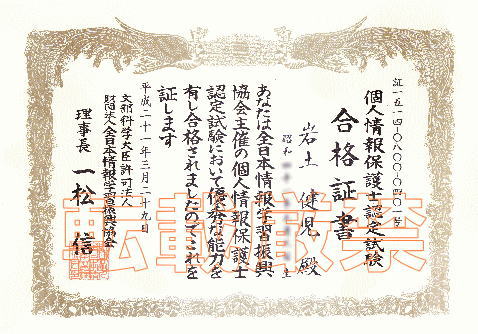 証一五-四-〇八〇〇-〇四〇一号
個人情報保護士認定試験
合格証書
岩土 健児 殿
昭和
あなたは全日本情報学習振興
協会主催の個人情報保護士
認定試験において優秀な能力を
有し合格されましたのでこれを
証します
平成二十一年三月二十九日
文部科学大臣許可法人
財団法人全日本情報学習振興協会
理事長 一松 信
転載厳禁